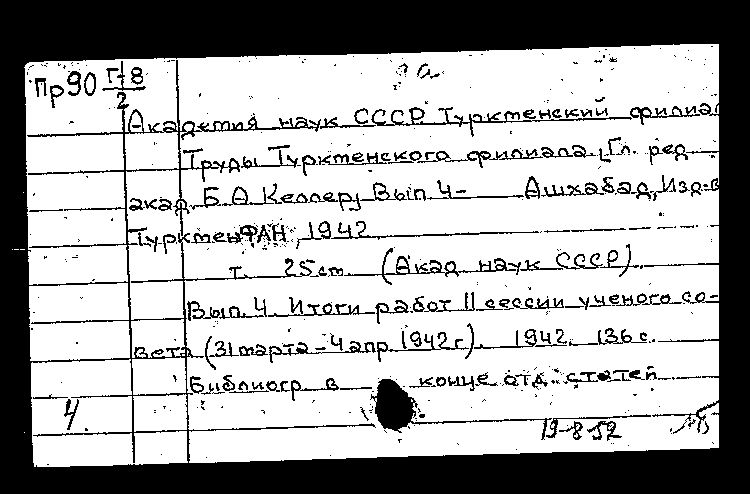 Пр90 Г-8
2
Академия наук СССР Туркменский филиал
Труды Туркменского филиала [Гл. ред
акад. Б.А. Келлер] Вып. 4- Ашхабад, Изд-в
ТуркменФАН, 1942
т. 25см. (Акад. наук СССР).
Вып. 4. Итоги работ II сессии ученого со-
вета (31 марта - 4 апр. 1942 г). 1942. 136 с.
Библиогр. в конце отд. статей
4.
19-8-52